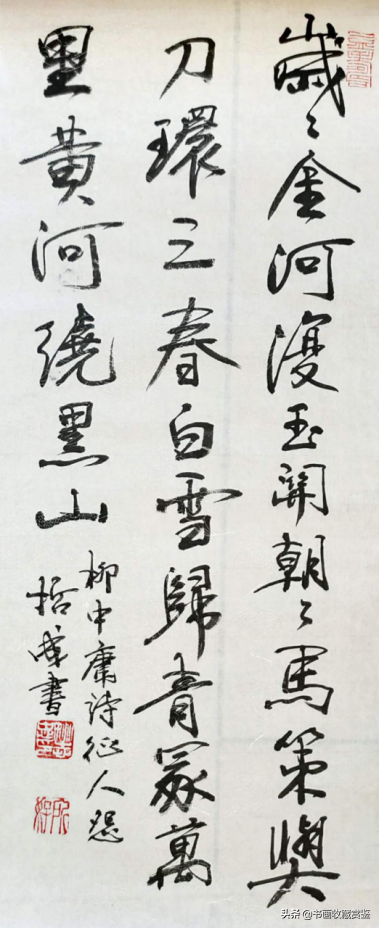 歲〻金河復玉關朝〻馬策與
刀環三春白雪歸青冢萬
里黃河繞黑山
柳中庸詩征人怨
哲成書
头条 @书画收藏赏鉴